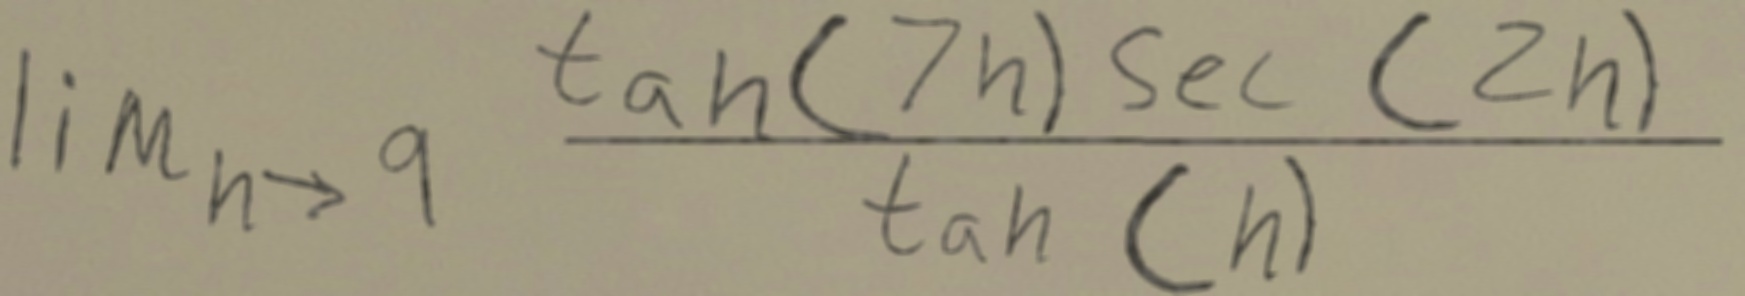 lim_{h→9} \frac{tan(7h) sec(2h)}{tan(h)}